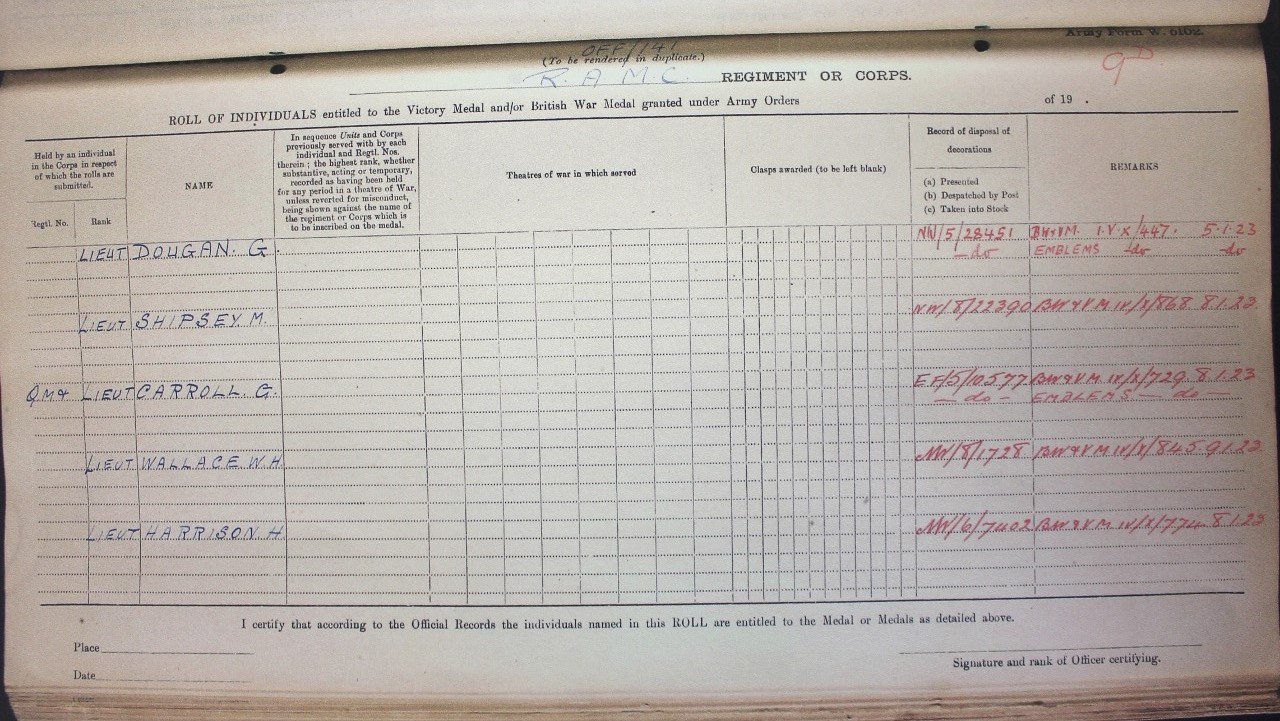 Army Form W. 5102.
OFF/141
(To be rendered in duplicate.)
R.A.M.C. REGIMENT OR CORPS.
ROLL OF INDIVIDUALS entitled to the Victory Medal and/or British War Medal granted under Army Orders of 19 .
Held by an individual
in the Corps in respect
of which the rolls are
submitted.
Regtl. No.
Rank
NAME
In sequence Units and Corps
previously served with by each
individual and Regtl. Nos.
therein ; the highest rank, whether
substantive, acting or temporary,
recorded as having been held
for any period in a theatre of War,
unless reverted for misconduct,
being shown against the name of
the regiment or Corps which is
to be inscribed on the medal.
Theatres of war in which served
Clasps awarded (to be left blank)
Record of disposal of
decorations
(a) Presented
(b) Despatched by Post
(c) Taken into Stock
REMARKS
LIEUT DOUGAN. G. NW/5/28451 BW&VM. I.V.X/447. 5.1.23
—do EMBLEMS —do —do
LIEUT SHIPSEY. M. NW/8/22390 BW&VM IV/X/868 8.1.23.
QMr LIEUT CARROLL. G. EF/5/10577 BW&VM IV/X/729. 8.1.23
— do — EMBLEMS — do —
LIEUT WALLACE. W.H. NW/8/1728 BW&VM IV/X/845 9.1.23.
LIEUT HARRISON. H. NW/6/7402 BW&VM IV/X/774 8.1.23
I certify that according to the Official Records the individuals named in this ROLL are entitled to the Medal or Medals as detailed above.
Place
Signature and rank of Officer certifying.
Date